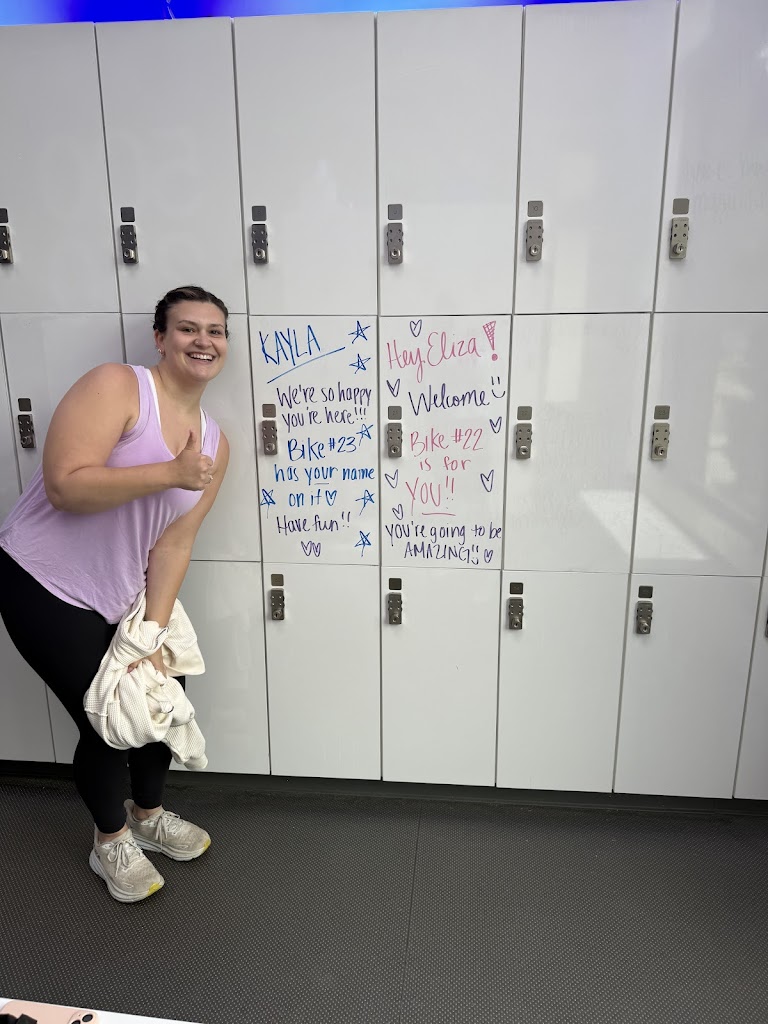 KAYLA
We're so happy
you're here!!!
Bike #23
has your name
on it
Have fun!!
Hey, Eliza!
Welcome
Bike #22
is for
YOU!!
you're going to be
AMAZING!